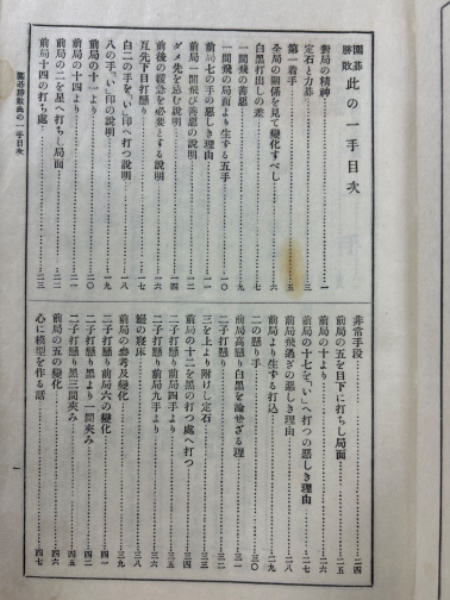 圍碁勝敗 此の一手目次
對局の精神……一
定石と力碁……三
第一着手……五
全局の關係を見て變化すべし……六
白黑打出しの差……七
一間飛の善惡……九
一間飛の局面より生ずる五手……一〇
前局七の手の惡しき理由……一一
前局一間飛び善惡の說明……一二
ダメ先を忌む說明……一四
前後の緩急を必要とする說明……一六
互先下目打懸り……一七
白二の手を、「い」印へ打つ說明……一八
八の手「い」印の說明……一九
前局の十一より……二〇
前局の十四より……二一
前局の二を星へ打ちし局面……二二
前局十四の打ち處……二三
非常手段……二四
前局の五を目下に打ちし局面……二五
前局の十より……二六
前局の十七を「い」へ打つの惡しき理由……二七
前局飛過ぎの惡しき理由……二八
前局より生ずる打込……二九
二の懸り手……三〇
前局高懸り白黑を論ぜざる理……三一
二子打懸り……三二
三を上より附けし定石……三三
前局の十二を黑の打つ處へ打つ……三四
二子打懸り前局四手より……三五
二子打懸り前局九手より……三六
鰻の寢床……三八
前局の參考及變化……三九
二子打懸り前局六の變化……四一
二子打懸り黑より一間夾み……四二
二子打懸り黑三間夾み……四五
前局の五の變化……四六
心に模型を作る話……四七
圍碁勝敗此の一手目次
一